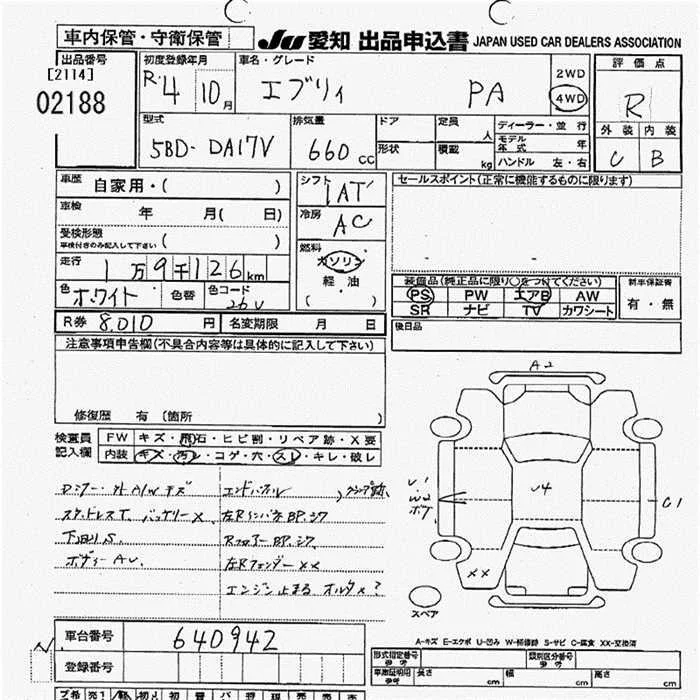 車内保管・守衛保管
JU 愛知 出品申込書 JAPAN USED CAR DEALERS ASSOCIATION
出品番号
[2114]
02188
初度登録年月
R.4 10月
車名・グレード
エブリィ PA
2WD
4WD
評価点
R
外装 内装
C B
型式
5BD-DA17V
排気量
660 CC
ドア
形状
定員 人
積載 kg
ディーラー・並行
モデル年式 年
ハンドル 左・右
車歴 自家用・( )
車検 年 月( 日)
受検形態
車検付きのみ記入して下さい ( )
走行 1万9千126km
色 ホワイト 色替 色コード 26V
シフト
IAT
冷房
AC
燃料
ガソリン
軽・油
( )
セールスポイント(正常に機能するものに限ります)
装備品(純正品に限り○をつけてください)
PS PW エアB AW
SR ナビ TV カワシート
新車保証書
有・無
後日品
R券 8,010 円 名変期限 月 日
注意事項申告欄(不具合内容等は具体的に記入して下さい)
修復歴 有(箇所 )
検査員記入欄
FW キズ・飛石・ヒビ割・リペア跡・X要
内装 キズ・汚レ・コゲ・穴・スレ・キレ・破レ
エンドパネル
スタッドレスT. バッテリーX
下廻りS
左Rフェンダー XX
エンジン止まる オルタX?
A2
U4
C1
XX
スペア
A-キズ E-エクボ U-凹み W-補修跡 S-サビ C-腐食 XX-交換済
車台番号 640942
登録番号
形式指定番号 参考
類別区分番号 参考
車庫証明用 参考 長さ cm 幅 cm 高さ cm